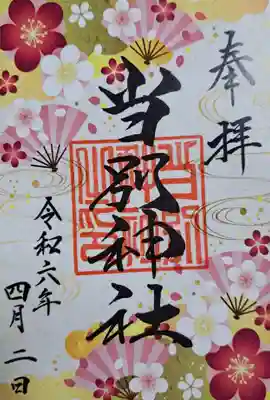 奉拝
当別神社
令和六年
四月二日